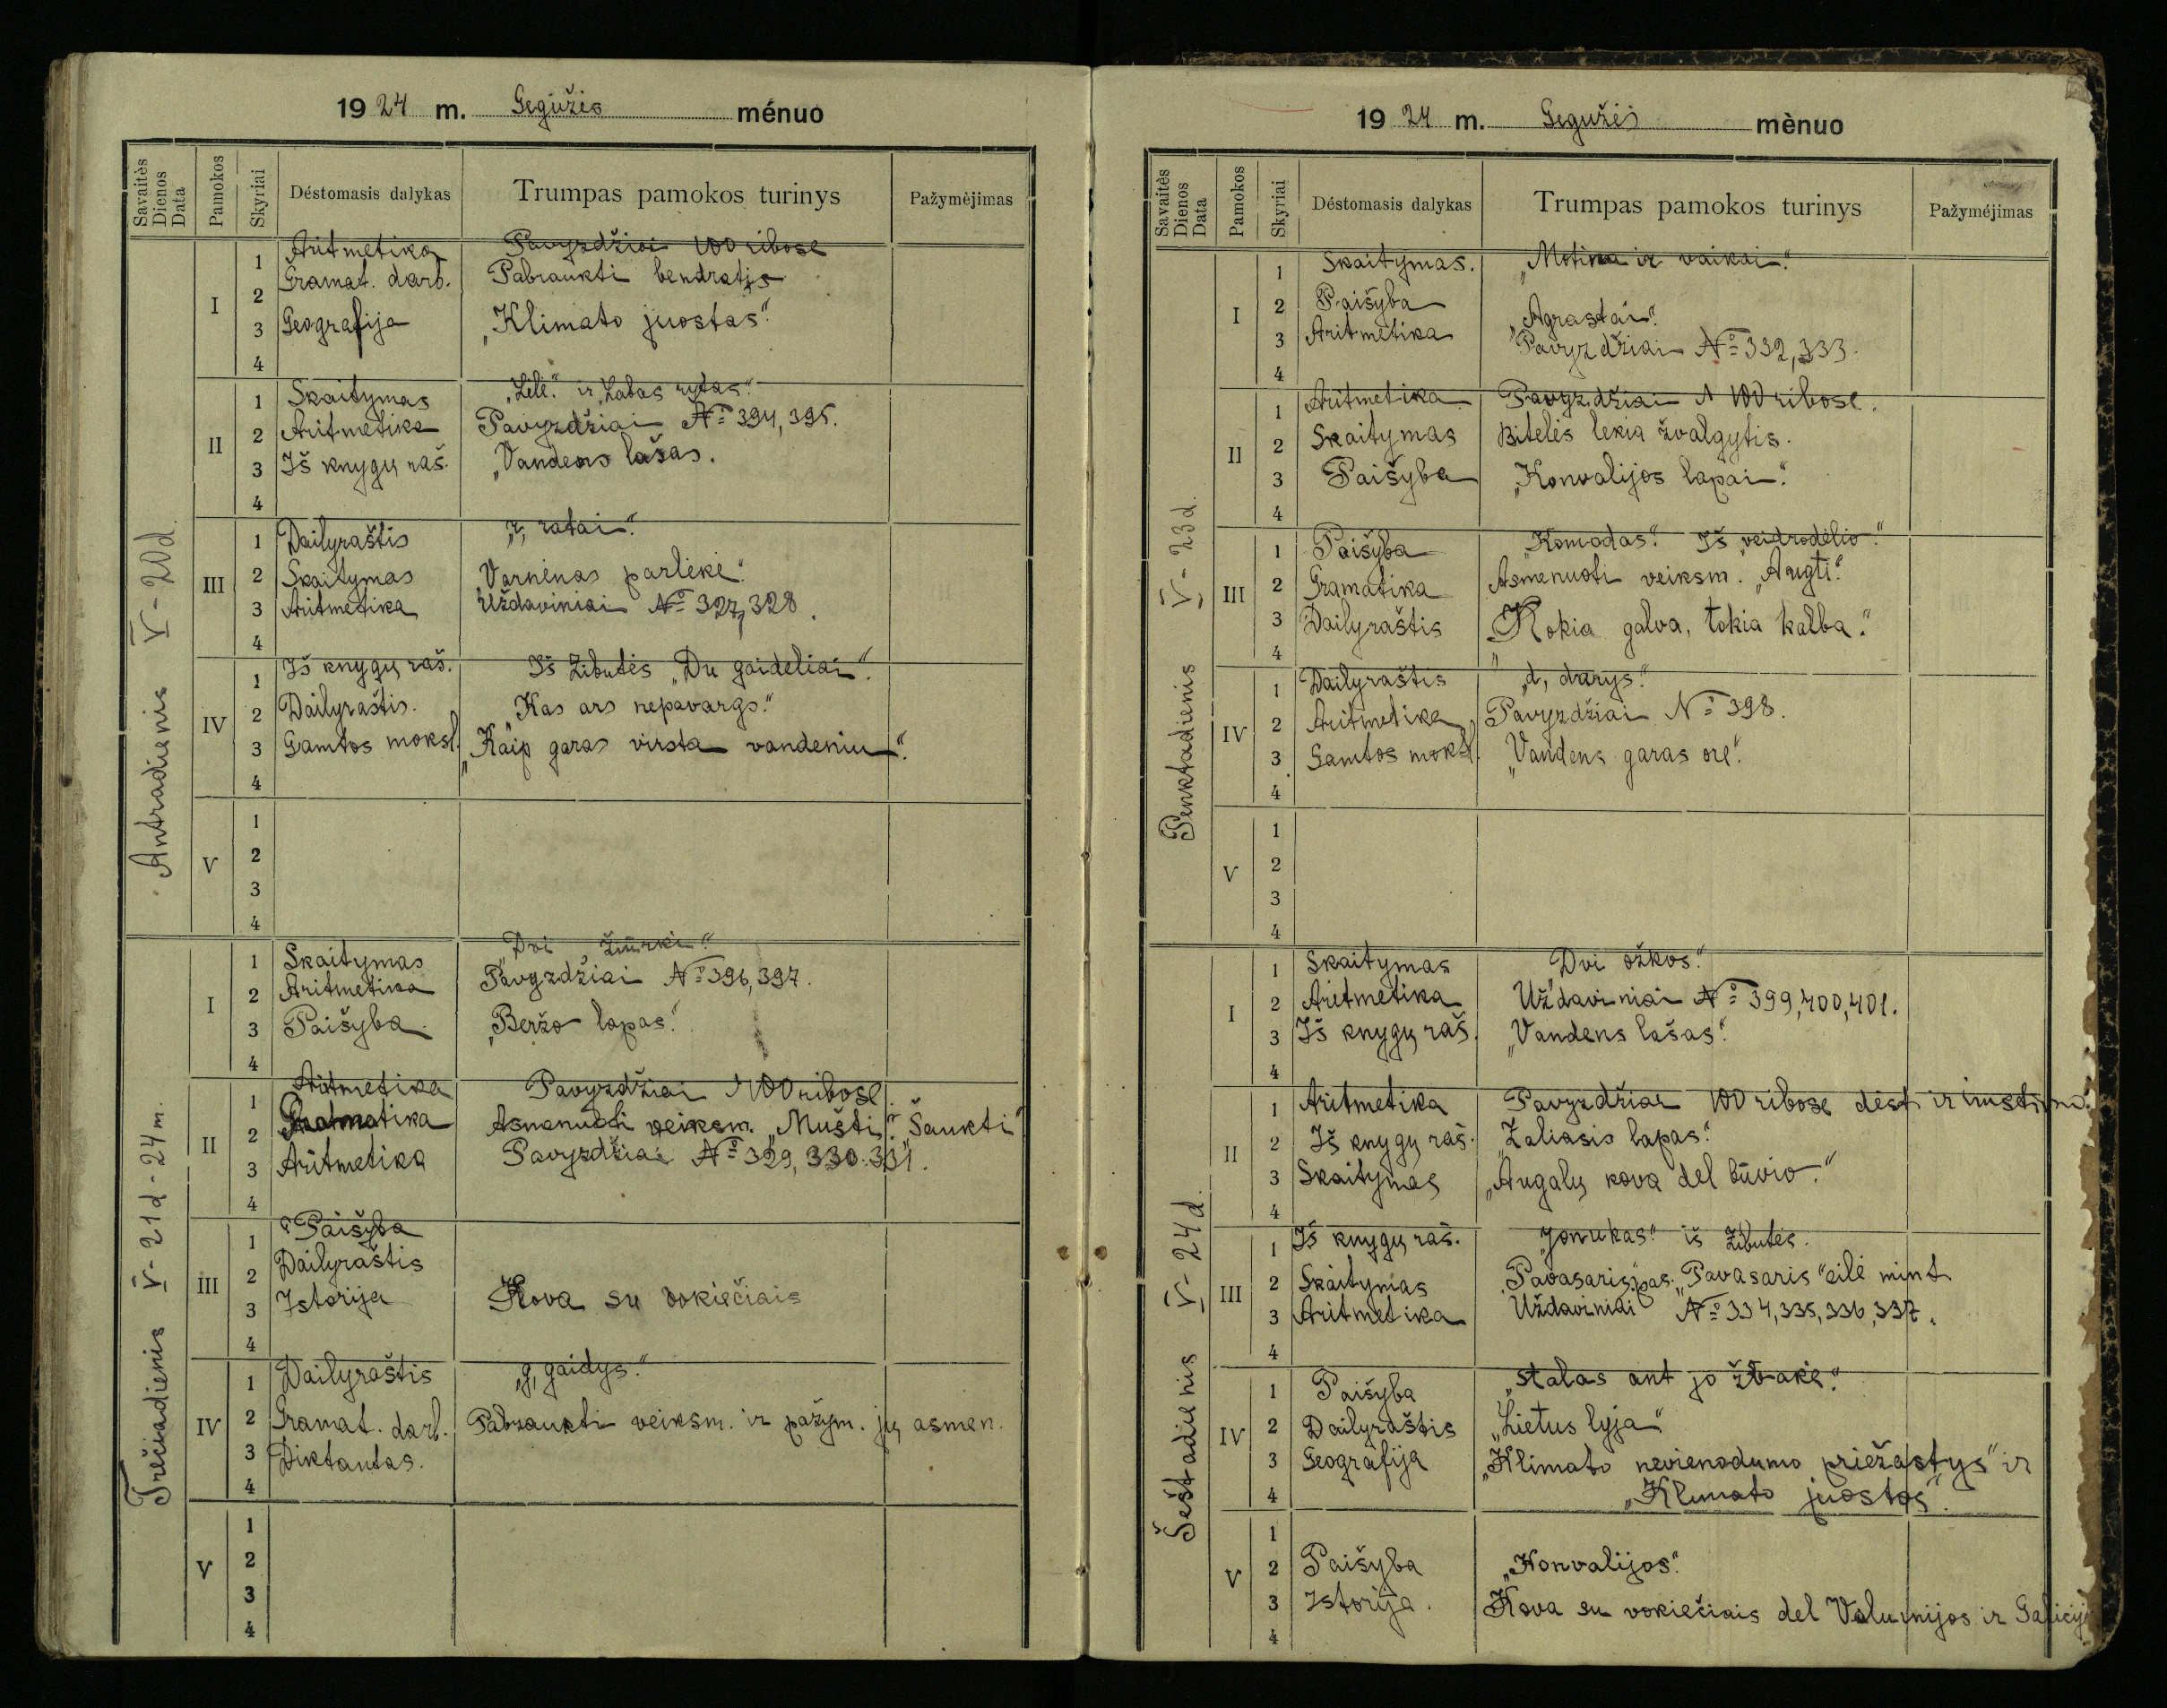 1924 m. Gegužės ménuo
Savaitės Dienos Data
Pamokos
Skyriai
Dėstomasis dalykas
Trumpas pamokos turinys
Pažymėjimas
Antradienis V-20d.
I
1 Aritmetika Pavyzdžiai 100 ribose
2 Gramat. darb. Pabraukti bendratįs
3 Geografija „Klimato juostas“.
4
II
1 Skaitymas „Lėlė“. ir „Labas rytas“.
2 Aritmetika Pavyzdžiai №394, 395.
3 Iš knygų raš. „Vandens lašas.
4
III
1 Dailyraštis „r, ratai“.
2 Skaitymas „Varnėnas parlėkė“.
3 Aritmetika Uždaviniai № 327, 328.
4
IV
1 Iš knygų raš. Iš Žibutės „Du gaideliai“.
2 Dailyraštis. „Kas ars nepavargs.“
3 Gamtos moksl. „Kaip garas virsta vandeniu“.
4
V
1
2
3
4
Trečiadienis V-21d-24m.
I
1 Skaitymas „Dvi žiurki“.
2 Aritmetika Pavyzdžiai №396, 397.
3 Paišyba „Beržo lapas“.
4
II
1 Aritmetika Pavyzdžiai 100 ribose.
2 Gramatika Asmenuoti veiksm. „Mušti“. „Šaukti“
3 Aritmetika Pavyzdžiai № 329, 330. 331.
4
III
1 Paišyba
2 Dailyraštis
3 Istorija Kova su vokiečiais
4
IV
1 Dailyraštis „g, gaidys“.
2 Gramat. darb. Pabraukti veiksm. ir pažym. jų asmen.
3 Diktantas.
4
V
1
2
3
4
1924 m. Gegužės mėnuo
Savaitės Dienos Data
Pamokos
Skyriai
Dėstomasis dalykas
Trumpas pamokos turinys
Pažymėjimas
Penktadienis V-23d.
I
1 Skaitymas. „Motina ir vaikai“.
2 Paišyba „Agrastai“.
3 Aritmetika Pavyzdžiai № 332, 333.
4
II
1 Aritmetika Pavyzdžiai 100 ribose.
2 Skaitymas Bitelės lekia žvalgytis.
3 Paišyba „Konvalijos lapai“.
4
III
1 Paišyba „Komodas“. Iš „veidrodėlio“.
2 Gramatika Asmenuoti veiksm. „Augti“.
3 Dailyraštis „Kokia galva, tokia kalba“.
4
IV
1 Dailyraštis „d, darys“.
2 Aritmetika Pavyzdžiai № 398.
3 Gamtos moksl. „Vandens garas ore“.
4
V
1
2
3
4
Šeštadienis V-24d.
I
1 Skaitymas „Dvi ožkos“.
2 Aritmetika Uždaviniai № 399, 400, 401.
3 Iš knygų raš. „Vandens lašas“.
4
II
1 Aritmetika Pavyzdžiai 100 ribose dėst ir
2 Iš knygų raš. „Žaliasis lapas“.
3 Skaitymas „Augalų kova del būvio“.
4
III
1 Iš knygų raš. „Jonukas“ iš Žibutės.
2 Skaitymas „Pavasaris“, pas. „Pavasaris“ eilė mint
3 Aritmetika Uždaviniai № 334, 335, 336, 337.
4
IV
1 Paišyba „Stalas ant jo žvakė“.
2 Dailyraštis „Lietus lyja“
3 Geografija „Klimato nevienodumo priežastys“ ir
4 „Klimato juostos“.
V
1
2 Paišyba „Konvalijos“.
3 Istorija. Kova su vokiečiais del Volunijos ir
4